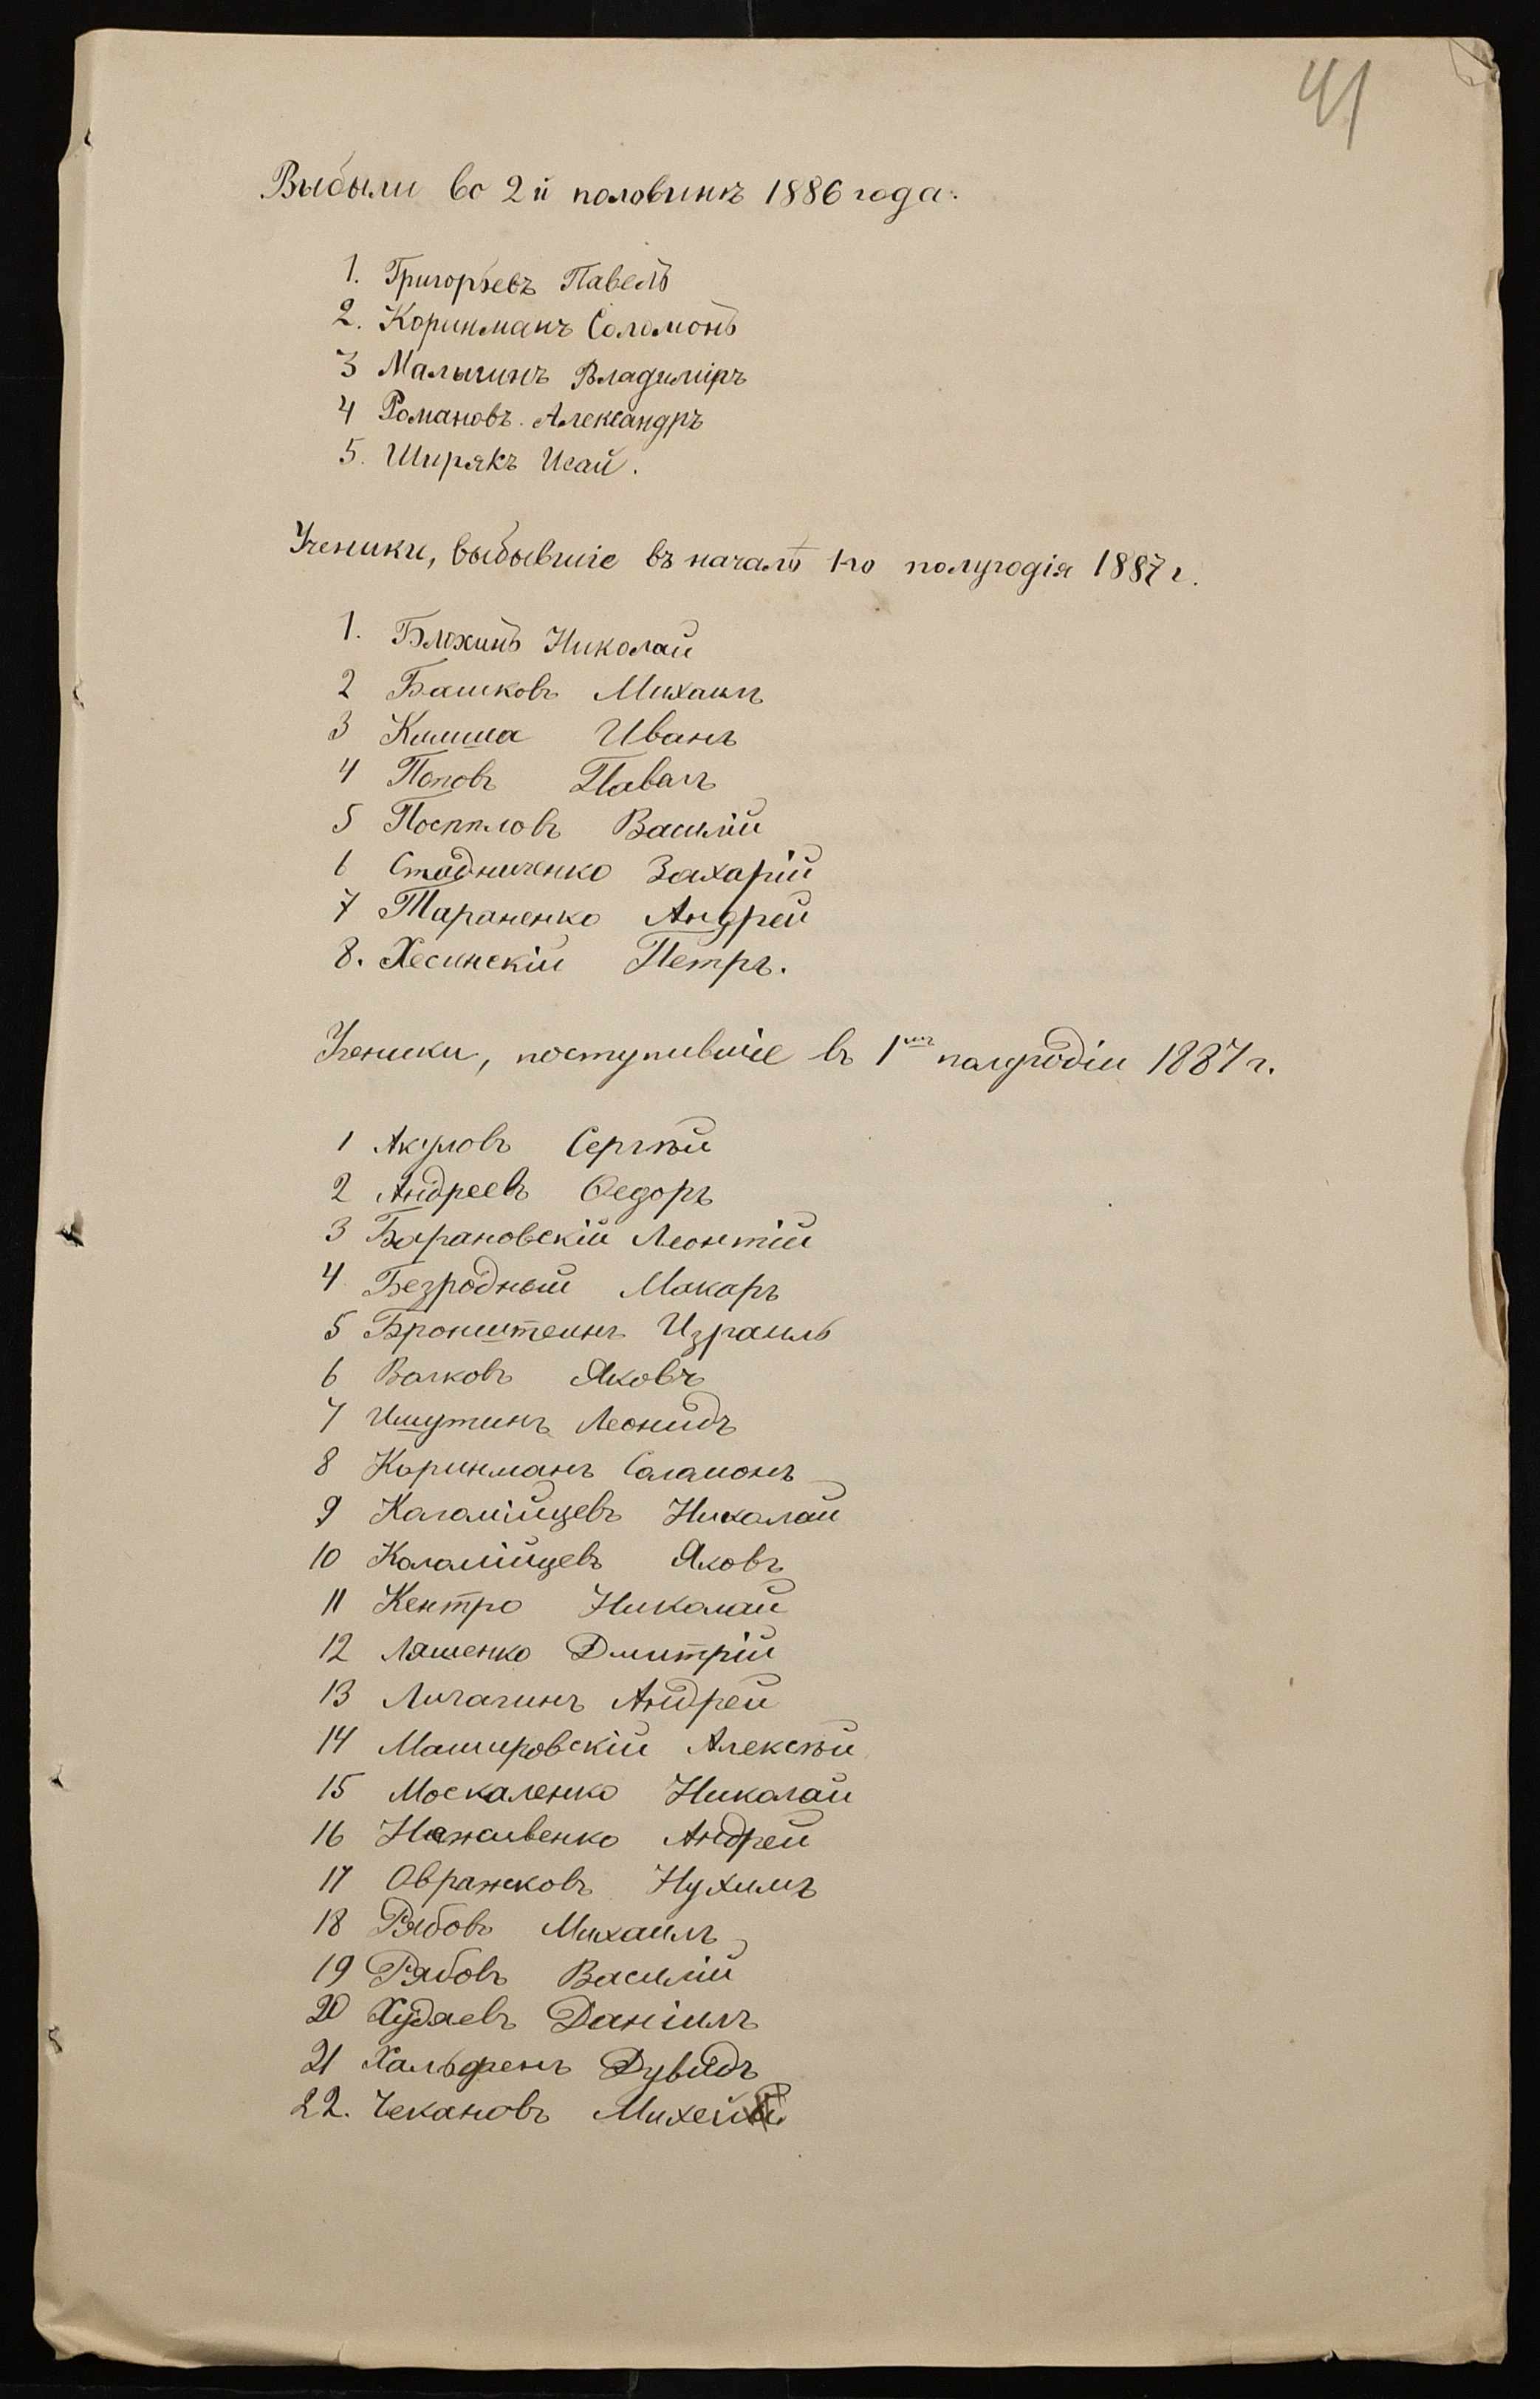 41
Выбыли во 2й половинѣ 1886 года:
1. Григорьевъ Павелъ
2. Коринманъ Соломонъ
3 Малыгинъ Владиміръ
4 Романовъ. Александръ
5. Ширякъ Исай.
Ученики, выбывшіе въ началѣ 1-го полугодія 1887 г.
1. Блохинъ Николай
2 Башковъ Михаилъ
3 Иванъ
4 Поповъ Павелъ
5 Поспѣловъ Василій
6 Стадниченко Захарій
7 Тараненко Андрей
8. Хесинскій Петръ.
Ученики, поступившіе въ 1мъ полугодіи 1887 г.
1 Акуловъ Сергѣй
2 Андреевъ Ѳедоръ
3 Барановскій Леонтій
4 Безродный Макаръ
5 Бронштеинъ Израиль
6 Волковъ Яковъ
7 Ишутинъ Леонидъ
8 Коринманъ Соломонъ
9 Коломійцевъ Николай
10 Коломійцевъ Яковъ
11 Кентро Николай
12 Ляшенко Дмитрій
13 Личагинъ Андрей
14 Машировскій Алексѣй
15 Москаленко Николай
16 Наживенко Андрей
17 Овражковъ Нухимъ
18 Рябовъ Михаилъ
19 Рябовъ Василій
20 Худяевъ Даніилъ
21 Хальфенъ Дувидъ
22. Чекановъ Михей